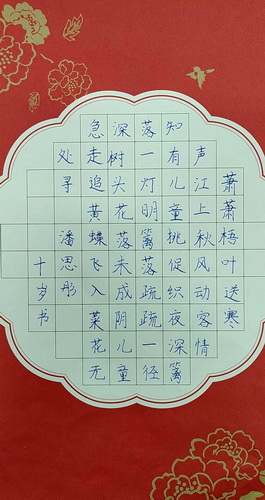 萧萧梧叶送寒
声江上秋风动客情
知有儿童挑促织夜深篱
落一灯明篱落疏疏一径
深树头花落未成阴儿童
急走追黄蝶飞入菜花无
处寻 潘思彤
十岁书